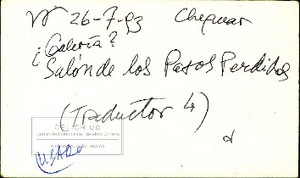 26-7-93 Chequear
¿Galería?
Salón de los Pasos Perdidos
(Traductor 4)
CELICH UC
USADO